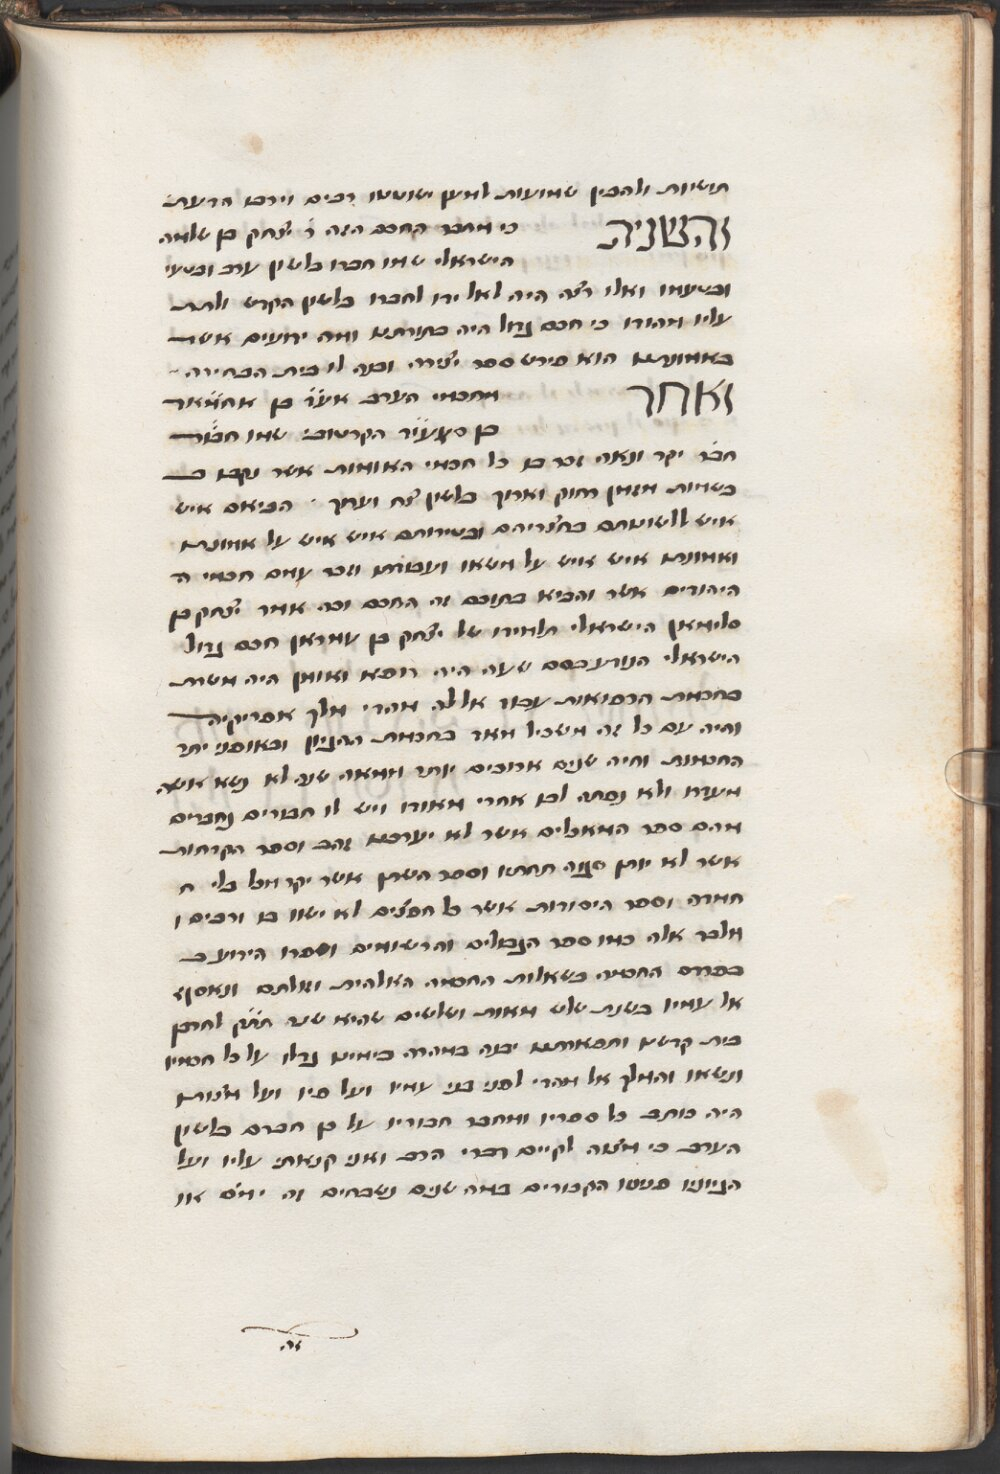 תושיות ולהבין שמועות למען ישוטטו רבים וירבו הדעת
והשנית כי מחבר החכם הזה ר׳ יצחק בן שלמה
הישראלי שמו חברו בלשון ערב
ואלו רצה היה לאל ידו לחברו בלשון הקדש ולתת
עליו מהודו כי חכם גדול היה בתורתם ומה יודעים אשר
באמונתם הוא פירש ספר יצירה ובנה לו בית הבחירה
ואחד מחכמי הערב בן
בן הקרטובי שמו חבור
חבר יקר ונאה זכר בו כל חכמי האומות אשר נקבו ב
בשמות מזמן רחוק וארוך בלשון צח וערוך הביאם איש
איש ללשונותם בחצריהם ובטירותם איש איש על אמונתו
ואמונתם איש איש על משאו ועבודתו וזכר עמם חכמי ה
היהודים אשר והביא בתוכם זה החכם וכה אמר יצחק בן
סלימאן הישראלי תלמידו של יצחק בן עמראן חכם גדול
הישראלי הנודע בסם שעה היה רופא ואומן היה משרת
בחכמת הרפואות עבור אללה מהדי מלך אפריקיה
והיה עם כל זה משכיל מאד בחכמת ההגיון ובאופני יתר
החכמות וחיה שנים ארוכים יותר ממאה שנה לא נשא אשה
מעודו ולא נפתה לבו אחרי מאודו ויש לו חבורים נחמדים
מהם ספר המאכלים אשר לא יערכם זהב וספר הקדחות
אשר לא יותן סגור תחתיו וספר השתן אשר יקר מכל כלי ח
חמדה וספר היסודות אשר כל חפצים לא ישוו בו ורבים ו
מלבד אלה כמו ספר הגבולים והרשומים וספרו הידוע ב
בפרדס החכמה בשאלות החכמה האלהית וזולתם ונאסף
אל עמיו בשנת שלש מאות ושלשים שהיא שנת לחרבן
בית קדשנו ותפארתנו יבנה במהרה בימינו גדלו על כל חכמיו
ונשאו והמלך אל מהדי לפני בני עמיו ועל פיו ועל מצותו
היה כותב כל ספריו ומחבר חבוריו על כן חברם בלשון
הערב כי מצוה לקיים דברי הרב ואני קנאתי עליו ועל
הגיוניו פניתו הקבורים במה שנים נשכחים זה ימים או
זה